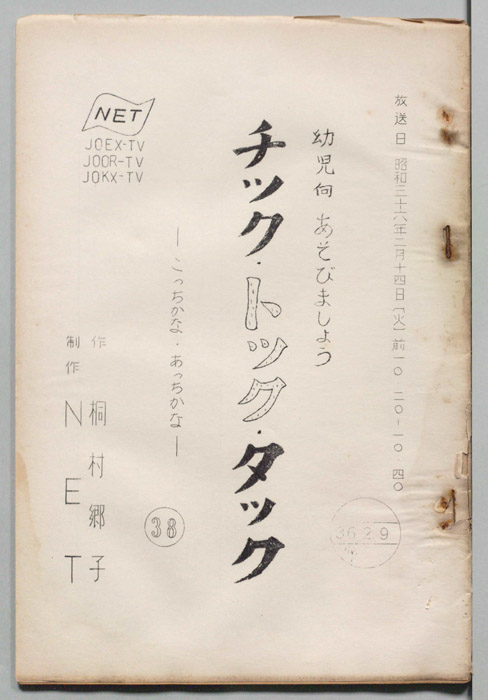 放送日 昭和三十六年二月十四日(火)前一〇・二〇-一〇・四〇
幼児向 あそびましょう
チック・トック・タック
―こっちかな・あっちかな―
38
作 桐村郷子
制作 NET
NET
JOEX-TV
JOOR-TV
JOKX-TV
36.2.9